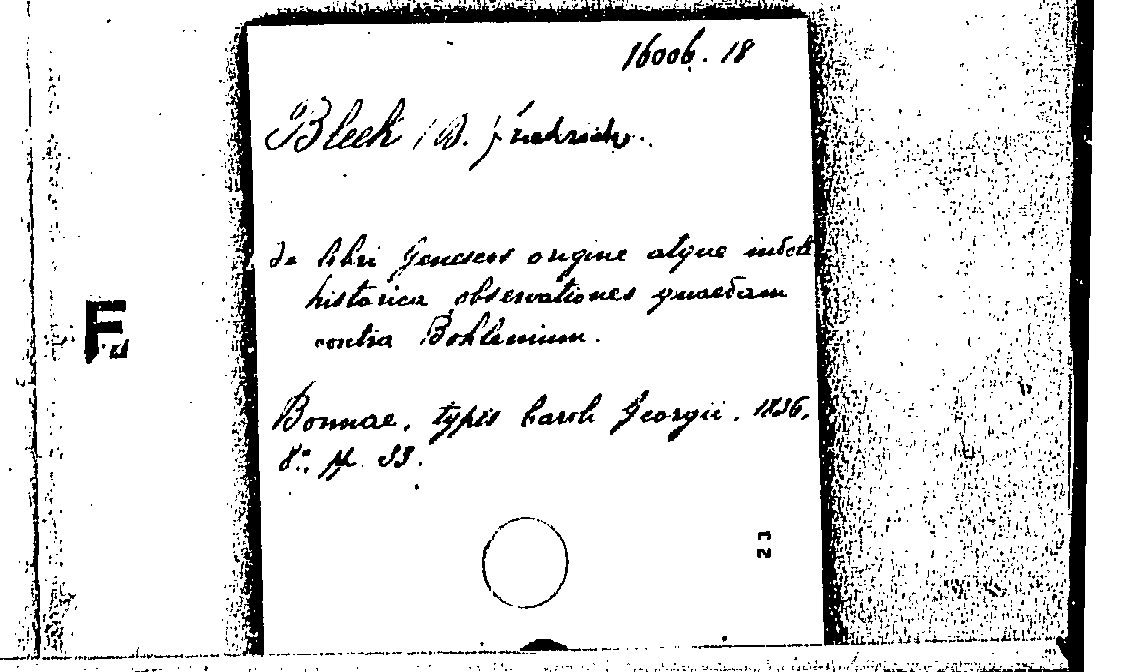 16006. 18
Bleek / D. Friedrich.
De libri Geneseos origine atque indole
historica observationes quaedam
contra Bohlenium.
Bonnae, typis Caroli Georgii. 1836.
8°. pp. 33.
F
23